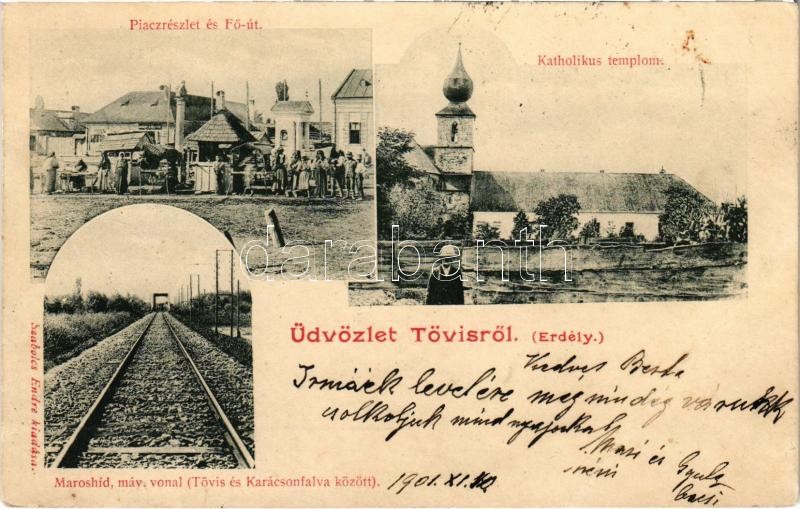 Piaczrészlet és Fő-út.
Katholikus templom.
darabanth
Üdvözlet Tövisről. (Erdély.)
Kedves Berta
Irmáék levelére még mindég várunk
csolkoljuk mind nyajockat
és
Gyula
bacsi
Szabolcs Endre kiadása.
Maroshíd, máv. vonal (Tövis és Karácsonfalva között).
1901. XI.